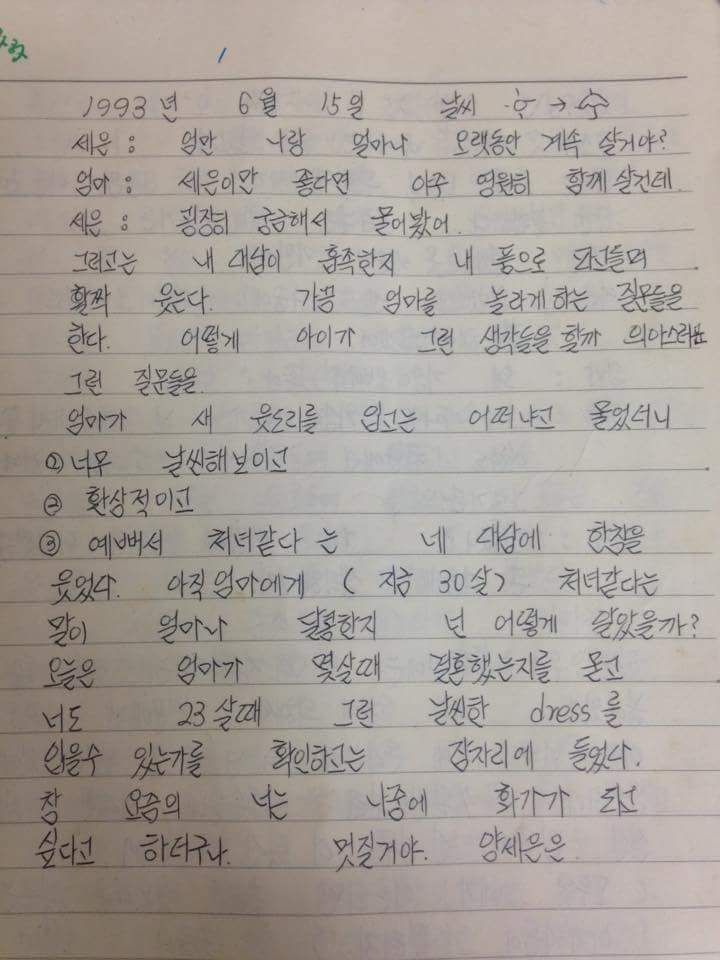 1
1993년 6월 15일 날씨 →
세은 : 엄만 나랑 얼마나 오랫동안 계속 살거야?
엄마 : 세은이만 좋다면 아주 영원히 함께 살건데.
세은 : 굉장히 궁금해서 물어봤어.
그러고는 내 대답이 흡족한지 내 품으로 파고들며
활짝 웃는다. 가끔 엄마를 놀라게 하는 질문들을
한다. 어떻게 아이가 그런 생각들을 할까 의아스러운
그런 질문들을.
엄마가 새 웃도리를 입고는 어떠냐고 물었더니
① 너무 날씬해보이고
② 환상적이고
③ 예뻐서 처녀같다 는 네 대답에 한참을
웃었다. 아직 엄마에게 (지금 30살) 처녀같다는
말이 얼마나 달콤한지 넌 어떻게 알았을까?
오늘은 엄마가 몇살때 결혼했는지를 묻고
너도 23살때 그런 날씬한 dress를
입을수 있는가를 확인하고는 잠자리에 들었다.
참 요즘의 너는 나중에 화가가 되고
싶다고 하더구나. 멋질거야. 양세은은